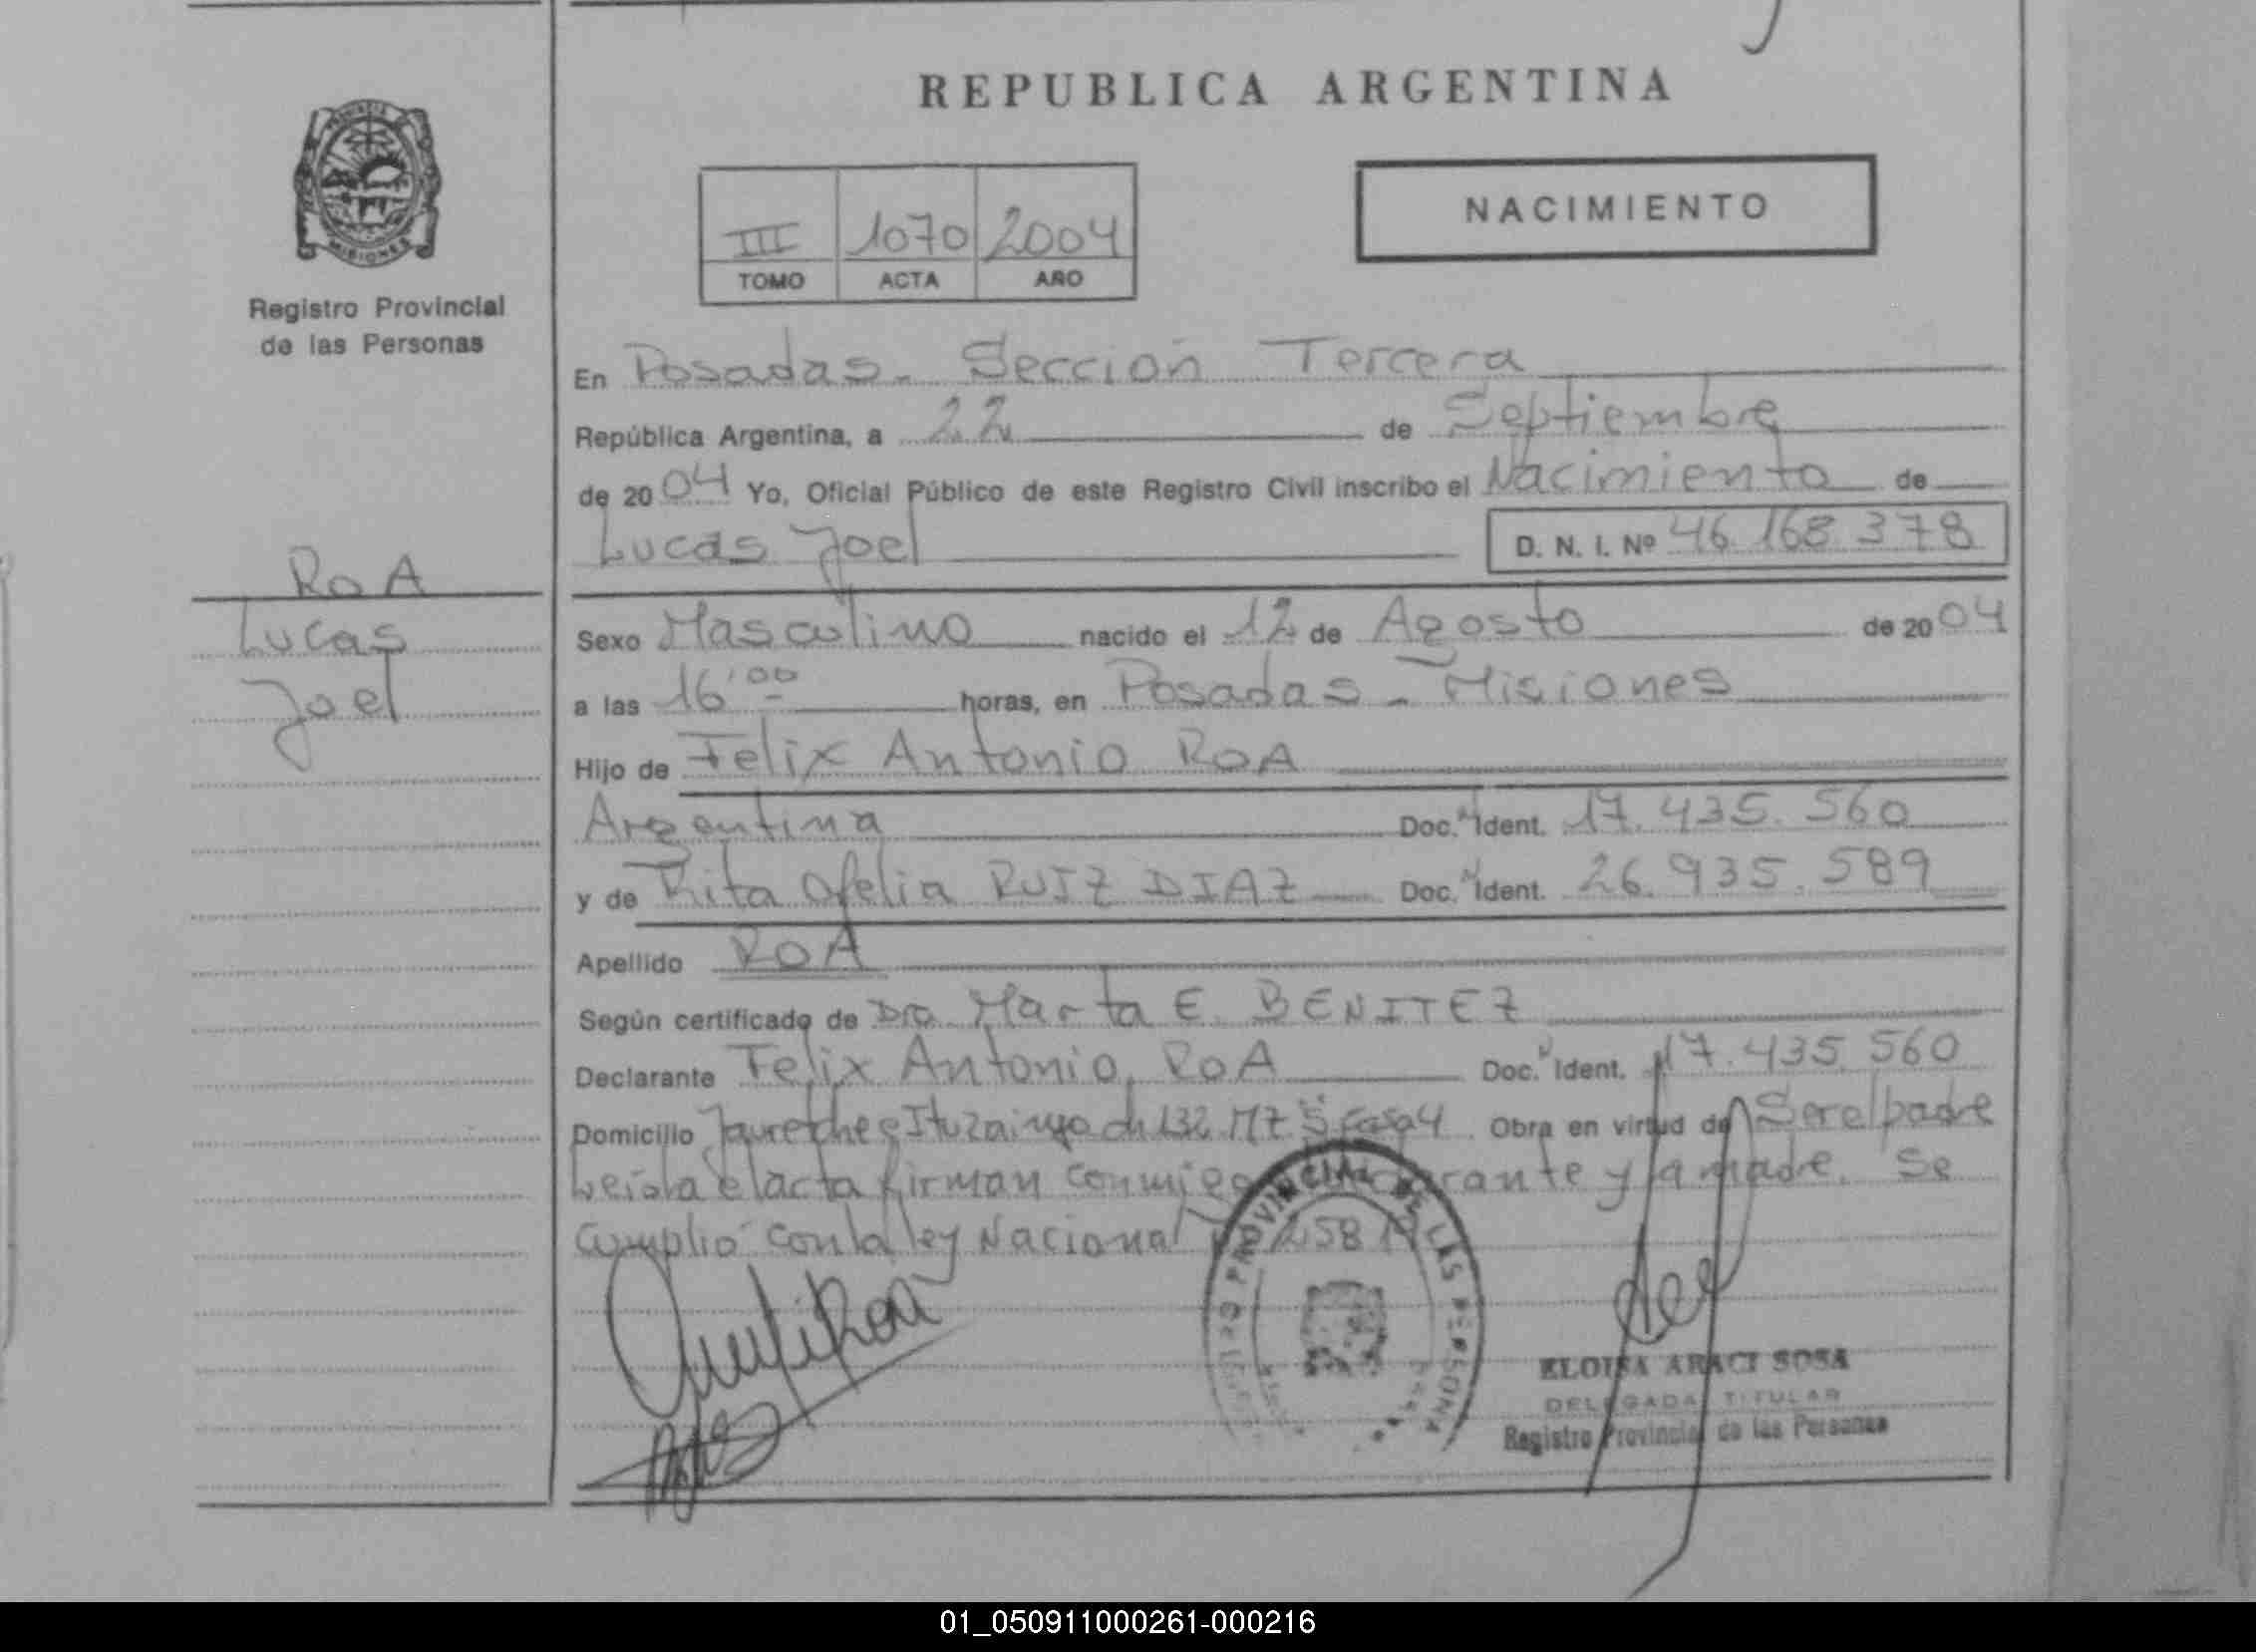 REPUBLICA ARGENTINA
PROVINCIA
MISIONES
Registro Provincial
de las Personas
III 1070 2004
TOMO ACTA AÑO
NACIMIENTO
En Posadas - Sección Tercera
República Argentina, a 22 de Septiembre
de 2004 Yo, Oficial Público de este Registro Civil inscribo el Nacimiento de
Lucas Joel D. N. I. Nº 46.168.378
ROA
Lucas
Joel
Sexo Masculino nacido el 12 de Agosto de 2004
a las 16'00 horas, en Posadas - Misiones
Hijo de Felix Antonio ROA
Argentina Doc. Ident. 17.435.560
y de Rita Ofelia RUIZ DIAZ Doc. Ident. 26.935.589
Apellido ROA
Según certificado de Dra. Marta E. BENITEZ
Declarante Felix Antonio ROA Doc. Ident. 17.435.560
Domicilio Jauretche e Ituzaingo ch 132 Mz 5 casa 4 Obra en virtud de Ser el padre
Leida el acta firman conmigo rante y la madre. Se
cumplió con la ley Nacional
PROVINCIAL DE LAS PERSONA
ELOISA ARACI SOSA
DELEGADA TITULAR
Registro Provincial de las Personas
01_050911000261-000216